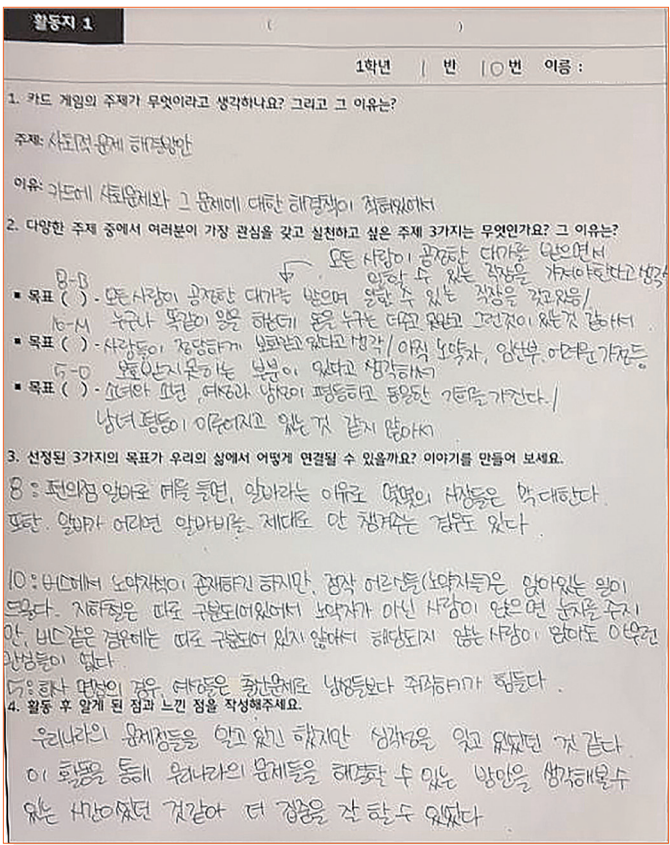 활동지 1
( )
1학년 1 반 10번 이름 :
1. 카드 게임의 주제가 무엇이라고 생각하나요? 그리고 그 이유는?
주제: 사회적 문제 해결방안
이유: 카드에 사회문제와 그 문제에 대한 해결책이 적혀있어서
2. 다양한 주제 중에서 여러분이 가장 관심을 갖고 실천하고 싶은 주제 3가지는 무엇인가요? 그 이유는?
모든 사람이 공정한 대가를 받으면서
일할 수 있는 직장을 가져야한다고 생각
8-B
■ 목표 ( ) - 모든사람이 공정한 대가를 받으며 일할 수 있는 직장을 갖고있음/
누구나 똑같이 일을 하는데 돈을 누구는 더주고 못받고 그런것이 있는것 같아서.
10-M
■ 목표 ( ) - 사람들이 정당하게 보호받고 있다고 생각/ 아직 노약자, 임산부, 어려운 가정등
보호받지 못하는 부분이 있다고 생각해서
5-D
■ 목표 ( ) - 소녀와 소년, 여성과 남성이 평등하고 동일한 기회를 가진다./
남녀 평등이 이루어지고 있는 것 같지 않아서
3. 선정된 3가지의 목표가 우리의 삶에서 어떻게 연결될 수 있을까요? 이야기를 만들어 보세요.
8 : 편의점 알바로 예를 들면, 알바라는 이유로 몇몇의 사장들은 막 대한다.
또한, 알바가 어리면 알바비를 제대로 안 챙겨주는 경우도 있다
10 : 버스에서 노약자석이 존재하긴 하지만, 정작 어르신들(노약자들)은 앉아있는 일이
드물다. 지하철은 따로 구분되어있어서 노약자가 아닌 사람이 앉으면 눈치를 주지
만, 버스같은 경우에는 따로 구분되어 있지 않아서 해당되지 않는 사람이 앉아도 아무런
관심들이 없다
5 : 회사 면접의 경우, 여성들은 출산문제로 남성들보다 취직하기가 힘들다.
4. 활동 후 알게 된 점과 느낀 점을 작성해주세요.
우리나라의 문제점들을 알고 있긴 했지만 심각성을 잊고 있었던 것 같다.
이 활동을 통해 우리나라의 문제들을 해결할 수 있는 방안을 생각해볼수
있는 시간이었던 것같아 더 집중을 잘 할 수 있었다